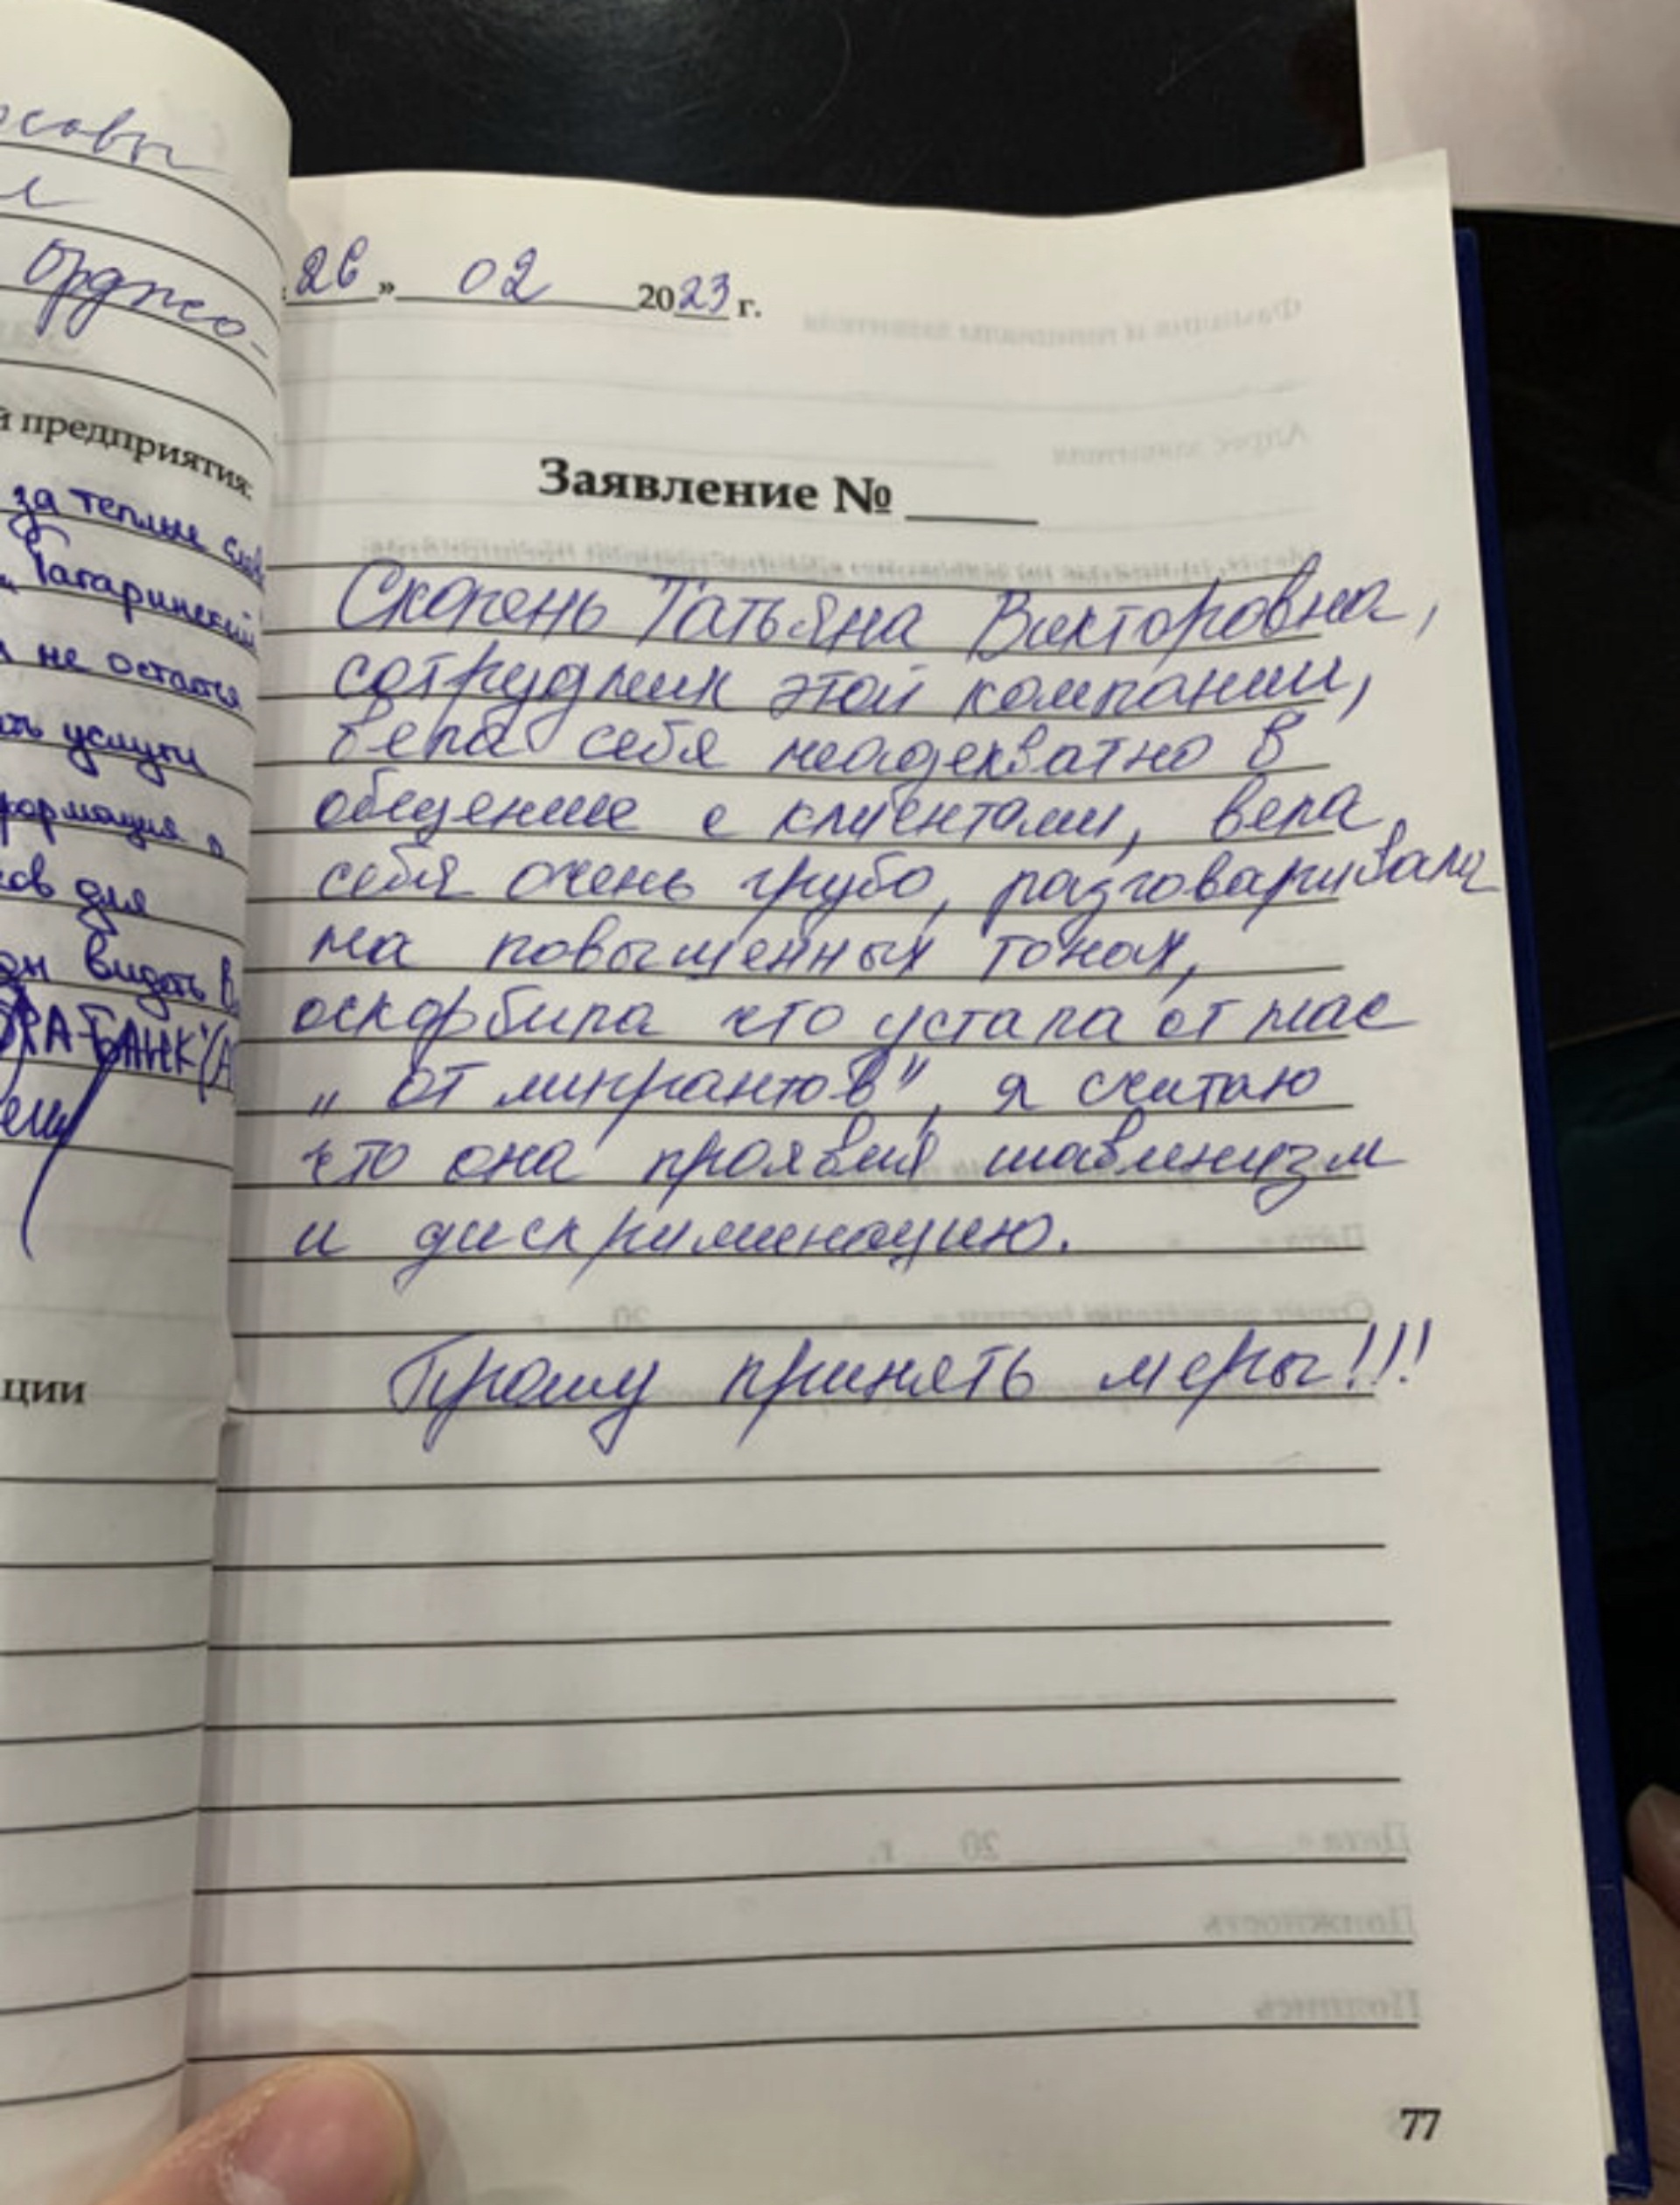 орджо-
й предприятия:
за теплые слова
Гагаринский
не остался
услуги
для
видеть В
БАНК"(А
ции
26 » 02 2023 г.
Заявление № ____
Татьяна Викторовна,
сотрудник этой компании,
вела себя неадекватно в
общение с клиентами, вела
себя очень грубо, разговаривала
на повышенных тонах,
оскорбила что устала от нас
„ от мигрантов", я считаю
что она проявил шавинизм
и дискриминацию.
Прошу принять меры!!!
77